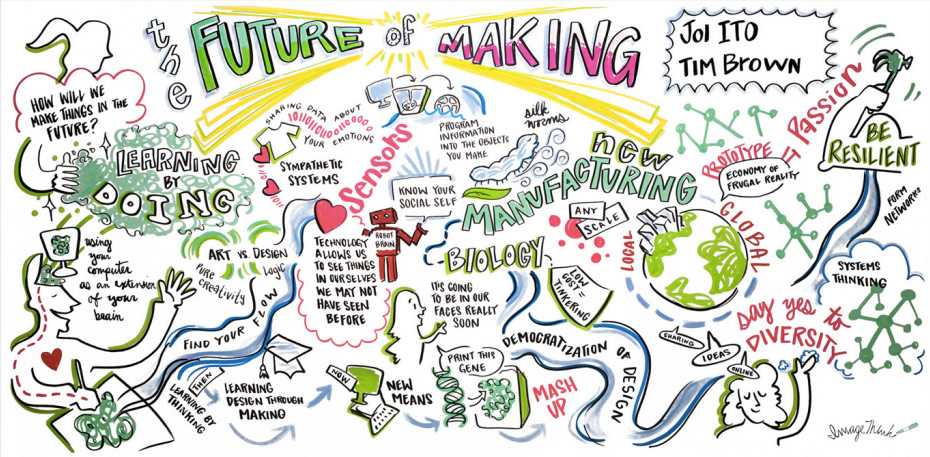 the FUTURE of MAKING
JOI ITO
TIM BROWN
HOW WILL WE
MAKE THINGS IN THE
FUTURE?
LEARNING
BY
DOING
SHARING DATA ABOUT
YOUR EMOTIONS
SYMPATHETIC
SYSTEMS
Sensors
PROGRAM
INFORMATION
INTO THE OBJECTS
YOU MAKE
KNOW YOUR
SOCIAL SELF
ROBOT
BRAIN
TECHNOLOGY
ALLOWS US
TO SEE THINGS
IN OURSELVES
WE MAY NOT
HAVE SEEN
BEFORE
silk
worms
new
MANUFACTURING
ANY
SCALE
LOCAL
GLOBAL
PROTOTYPE IT
ECONOMY OF
FRUGAL REALITY
PASSION
BE
RESILIENT
FORM
NETWORKS
SYSTEMS
THINKING
using
your
computer
as an extension
of your
brain
ART vs. DESIGN
PURE
CREATIVITY
LOGIC
FIND YOUR FLOW
BIOLOGY
IT'S GOING
TO BE IN OUR
FACES REALLY
SOON
LOW
COST =
TINKERING
DEMOCRATIZATION OF DESIGN
SAY YES to
DIVERSITY
SHARING
IDEAS
ONLINE
LEARNING BY
THINKING
THEN
LEARNING
DESIGN THROUGH
MAKING
NOW
NEW
MEANS
PRINT THIS
GENE
MASH
UP
ImageThink